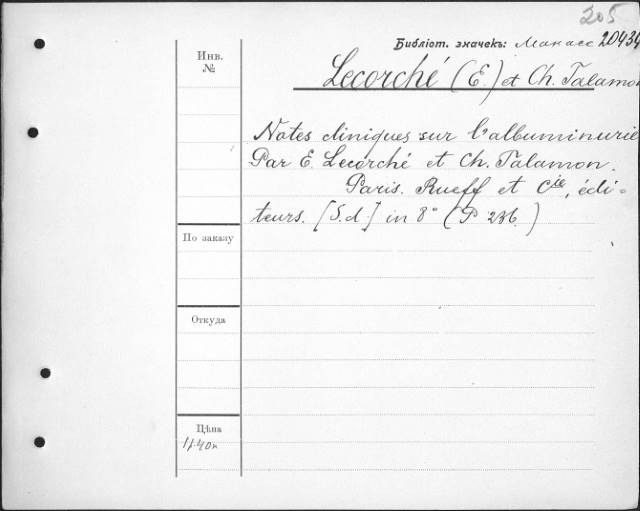 205
Библіот. значекъ: Манасс 20434
Инв.
№
Lecorché (E.) et Ch. Talamon
Notes cliniques sur l'albuminurie
Par E. Lecorché et Ch. Talamon.
Paris. Rueff et Cie, édi-
teurs. [S.d.] in 8° (P 236.)
По заказу
Откуда
Цѣна